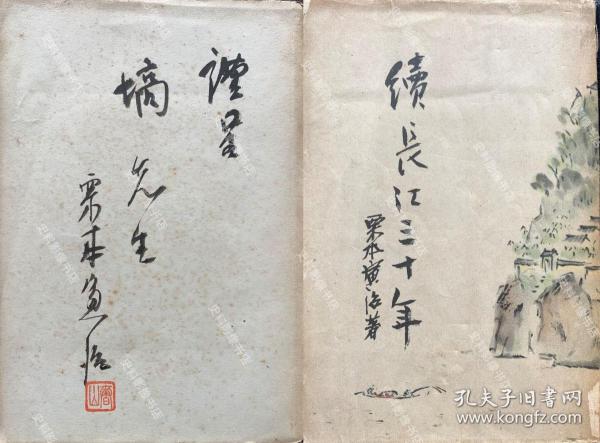 謹呈
塙先生
栗本寅治
續長江三十年
栗本寅治著
孔夫子旧书网
www.kongfz.com